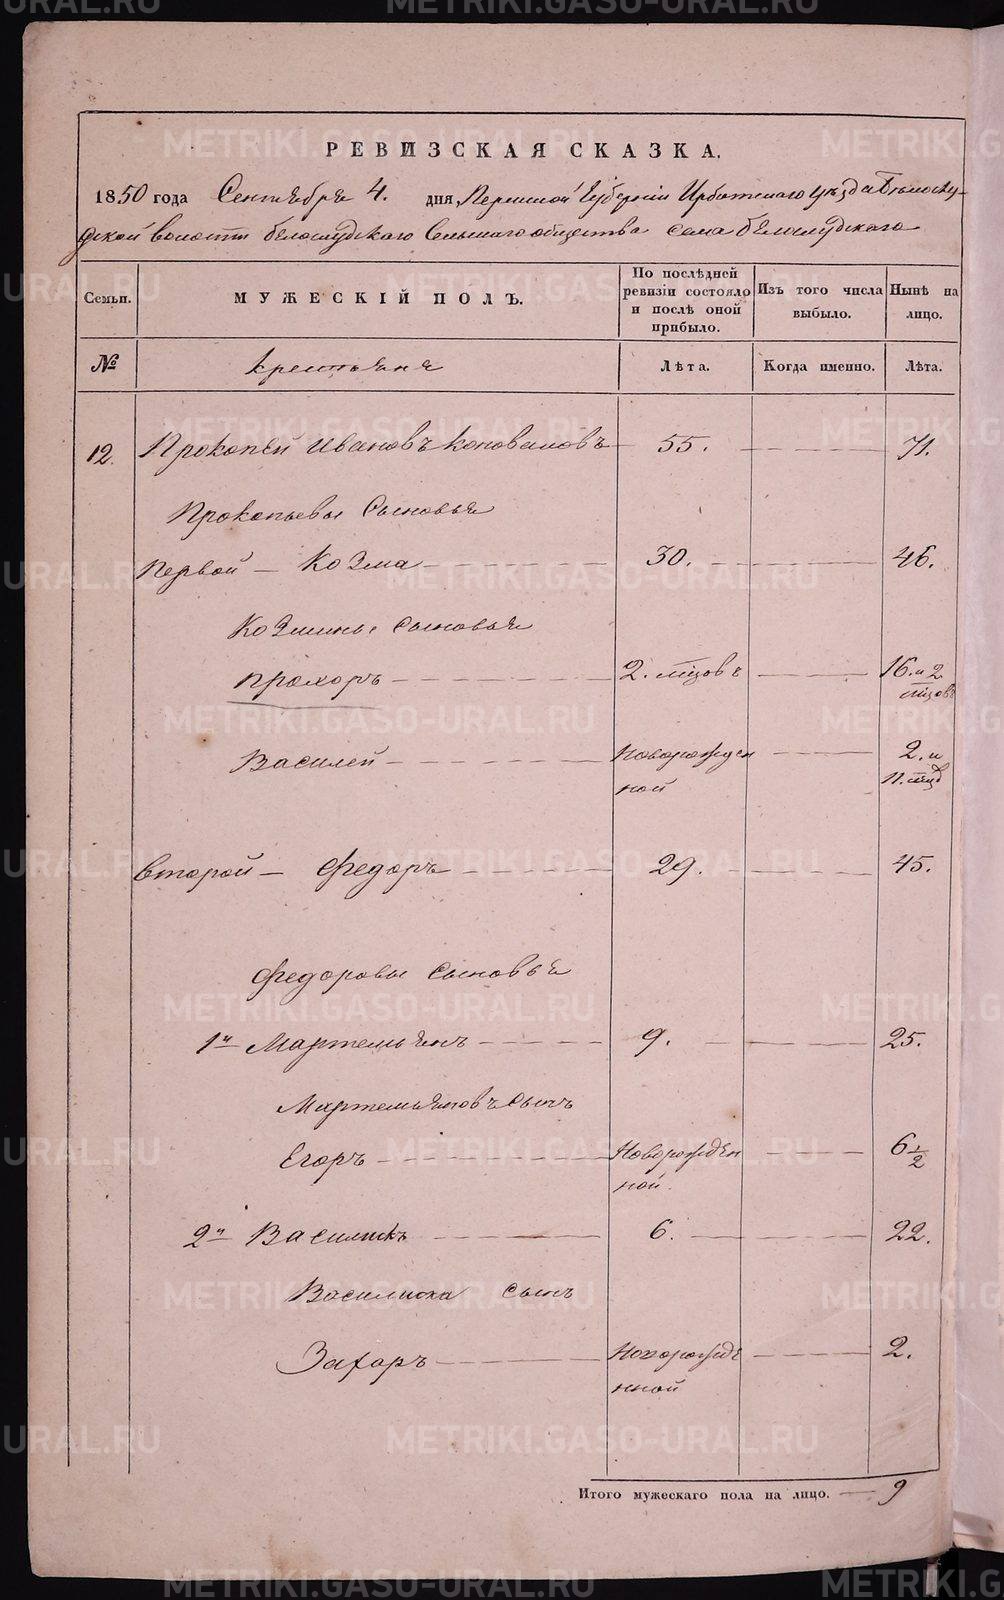 РЕВИЗСКАЯ СКАЗКА.
1850 года Сентября 4. дня, Пермской Губернiи Ирбитскаго уезда Белослу-
дской волости белослудскаго Сельскаго общества села белослудскаго
Семьи. МУЖЕСКІЙ ПОЛЪ. По послѣдней ревизіи состояло и послѣ оной прибыло. Изъ того числа выбыло. Нынѣ на лицо.
№ крестьяня Лѣта. Когда именно. Лѣта.
12. Прокопей Ивановъ коноваловъ 55. 71.
Прокопьевы Сыновья
Первой — Козма 30. 46.
Козмины Сыновья
Прохоръ 2. мѣсцовъ 16. и 2 мѣсцовъ
Василей Новорожденной 2. и П. мѣсц
Второй — Федоръ 29. 45.
Федоровы Сыновья
1й Мартемьянъ 9. 25.
Мартемьяновъ сынъ
Егоръ Новорожденной. 6 1/2
2й Василискъ 6. 22.
Василиска сынъ
Захаръ Новорожденной 2.
Итого мужескаго пола на лицо. — 9
METRIKI.GASO-URAL.RU